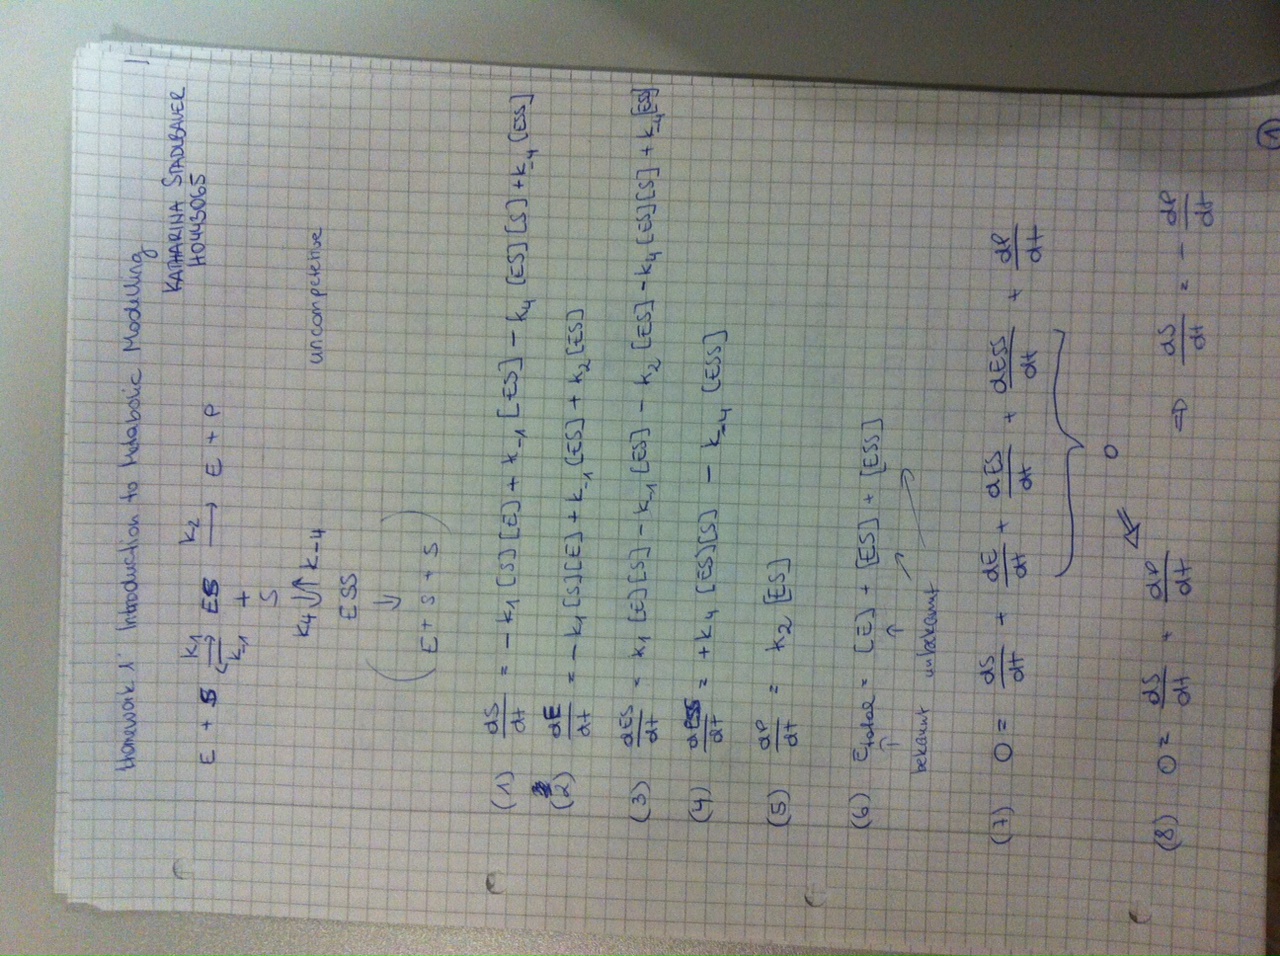 1
Homework 1: Introduction to Metabolic Modelling
KATHARINA STADLBAUER
H0443065
E + S k1 ⇌ k-1 ES k2 → E + P
+
S
k4 ↓↑ k-4
uncompetitive
ESS
↓
( E + S + S )
(1) dS/dt = - k1 [S][E] + k-1 [ES] - k4 [ES][S] + k-4 [ESS]
(2) dE/dt = - k1 [S][E] + k-1 [ES] + k2 [ES]
(3) dES/dt = k1 [E][S] - k-1 [ES] - k2 [ES] - k4 [ES][S] + k-4 [ESS]
(4) dESS/dt = + k4 [ES][S] - k-4 [ESS]
(5) dP/dt = k2 [ES]
(6) Etotal = [E] + [ES] + [ESS]
↑ ↑ ↗ ↗
bekannt unbekannt
(7) 0 = dS/dt + dE/dt + dES/dt + dESS/dt + dP/dt
0
(8) 0 = dS/dt + dP/dt ⇒ dS/dt = - dP/dt
1